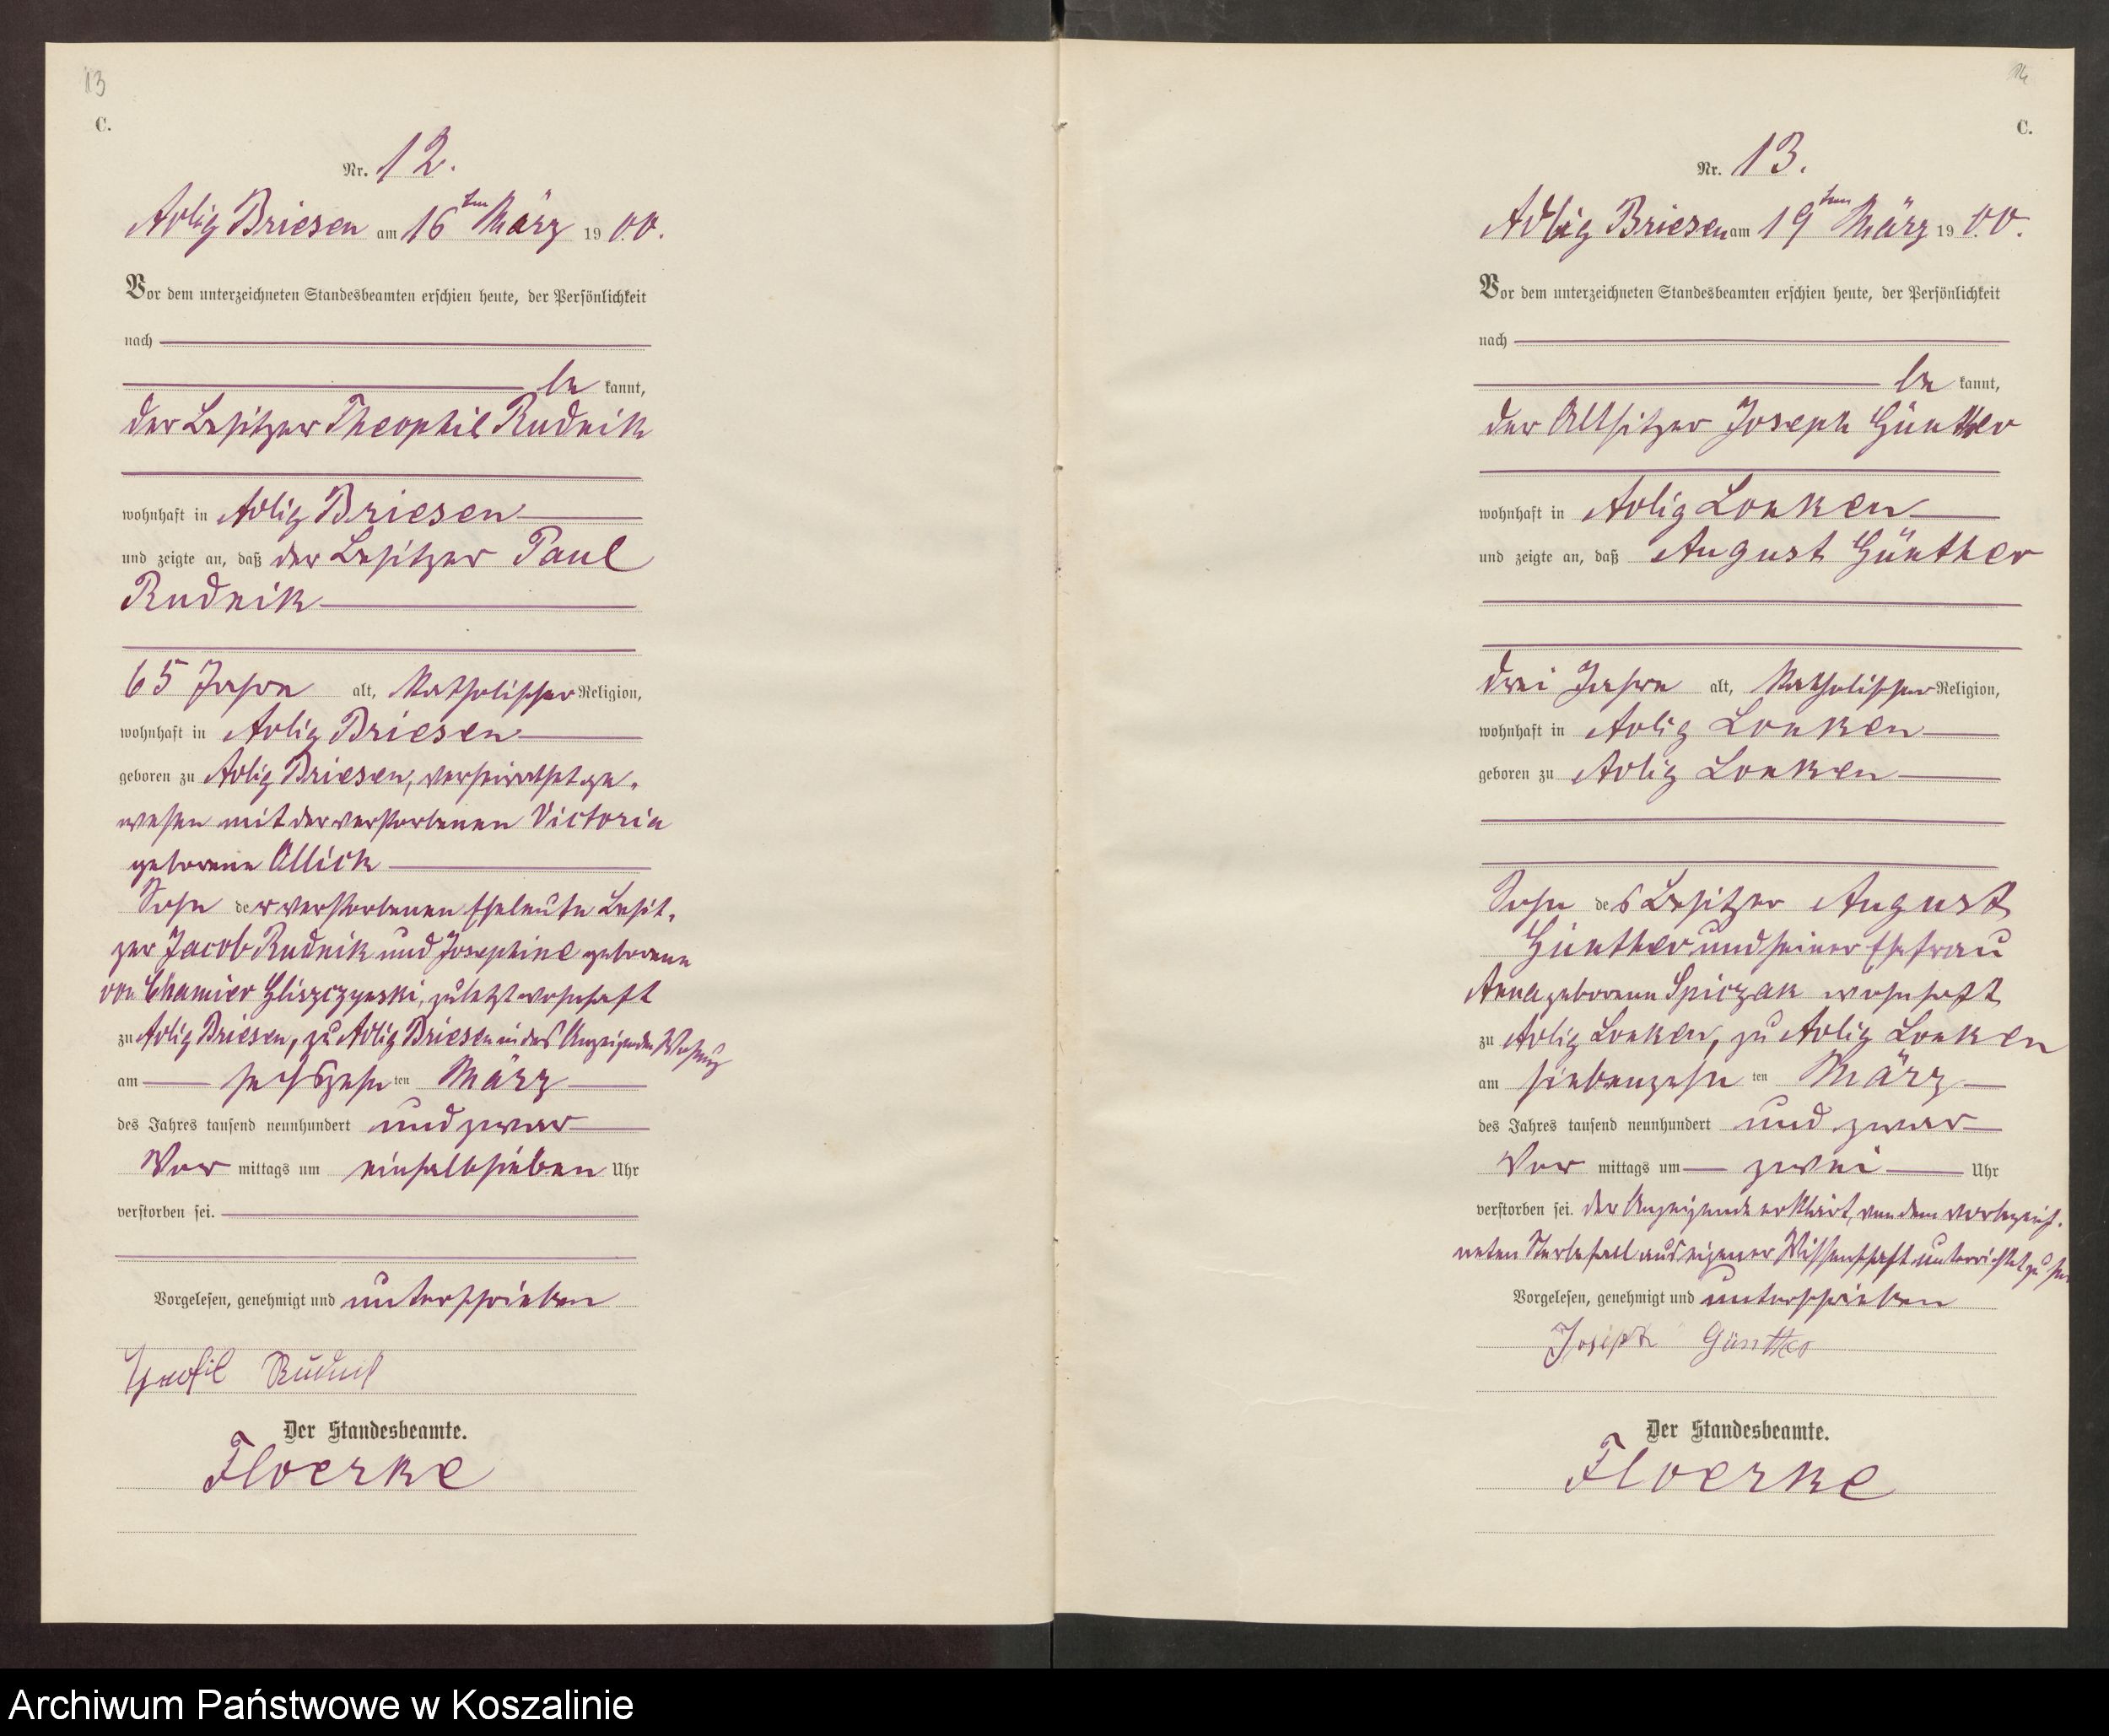 13
C.
Nr. 12.
Adlig Briesen am 16ten März 1900.
Vor dem unterzeichneten Standesbeamten erschien heute, der Persönlichkeit
nach
be kannt,
der Besitzer Theophil Rudnik
wohnhaft in Adlig Briesen
und zeigte an, daß der Besitzer Paul
Rudnik
65 Jahre alt, katholischer Religion,
wohnhaft in Adlig Briesen
geboren zu Adlig Briesen, verheirathet ge-
wesen mit der verstorbenen Victoria
geborene
Sohn der verstorbenen Eheleute Besit-
zer Jacob Rudnik und Josephine geborene
von Chamier Gliszczynski, zuletzt wohnhaft
zu Adlig Briesen, zu Adlig Briesen in des Anzeigenden Wohnung
am sechszehn ten März
des Jahres tausend neunhundert und zwar
Vor mittags um einhalbsieben Uhr
verstorben sei.
Vorgelesen, genehmigt und unterschrieben
Rudnik
Der Standesbeamte.
Floerke
C.
Nr. 13.
Adlig Briesen am 19ten März 1900.
Vor dem unterzeichneten Standesbeamten erschien heute, der Persönlichkeit
nach
be kannt,
der Altsitzer Joseph Günther
wohnhaft in Adlig Lonken
und zeigte an, daß August Günther
drei Jahre alt, katholischer Religion,
wohnhaft in Adlig Lonken
geboren zu Adlig Lonken
Sohn des Besitzer August
Günther und seiner Ehefrau
Anna geborenen Spiczak wohnhaft
zu Adlig Lonken, zu Adlig Lonken
am siebenzehn ten März
des Jahres tausend neunhundert und zwar
Vor mittags um zwei Uhr
verstorben sei. der Anzeigende erklärt, von dem vorbezeich-
neten Sterbefall aus eigener Wissenschaft unterrichtet zu sein
Vorgelesen, genehmigt und unterschrieben
Joseph Günther
Der Standesbeamte.
Floerke
Archiwum Państwowe w Koszalinie